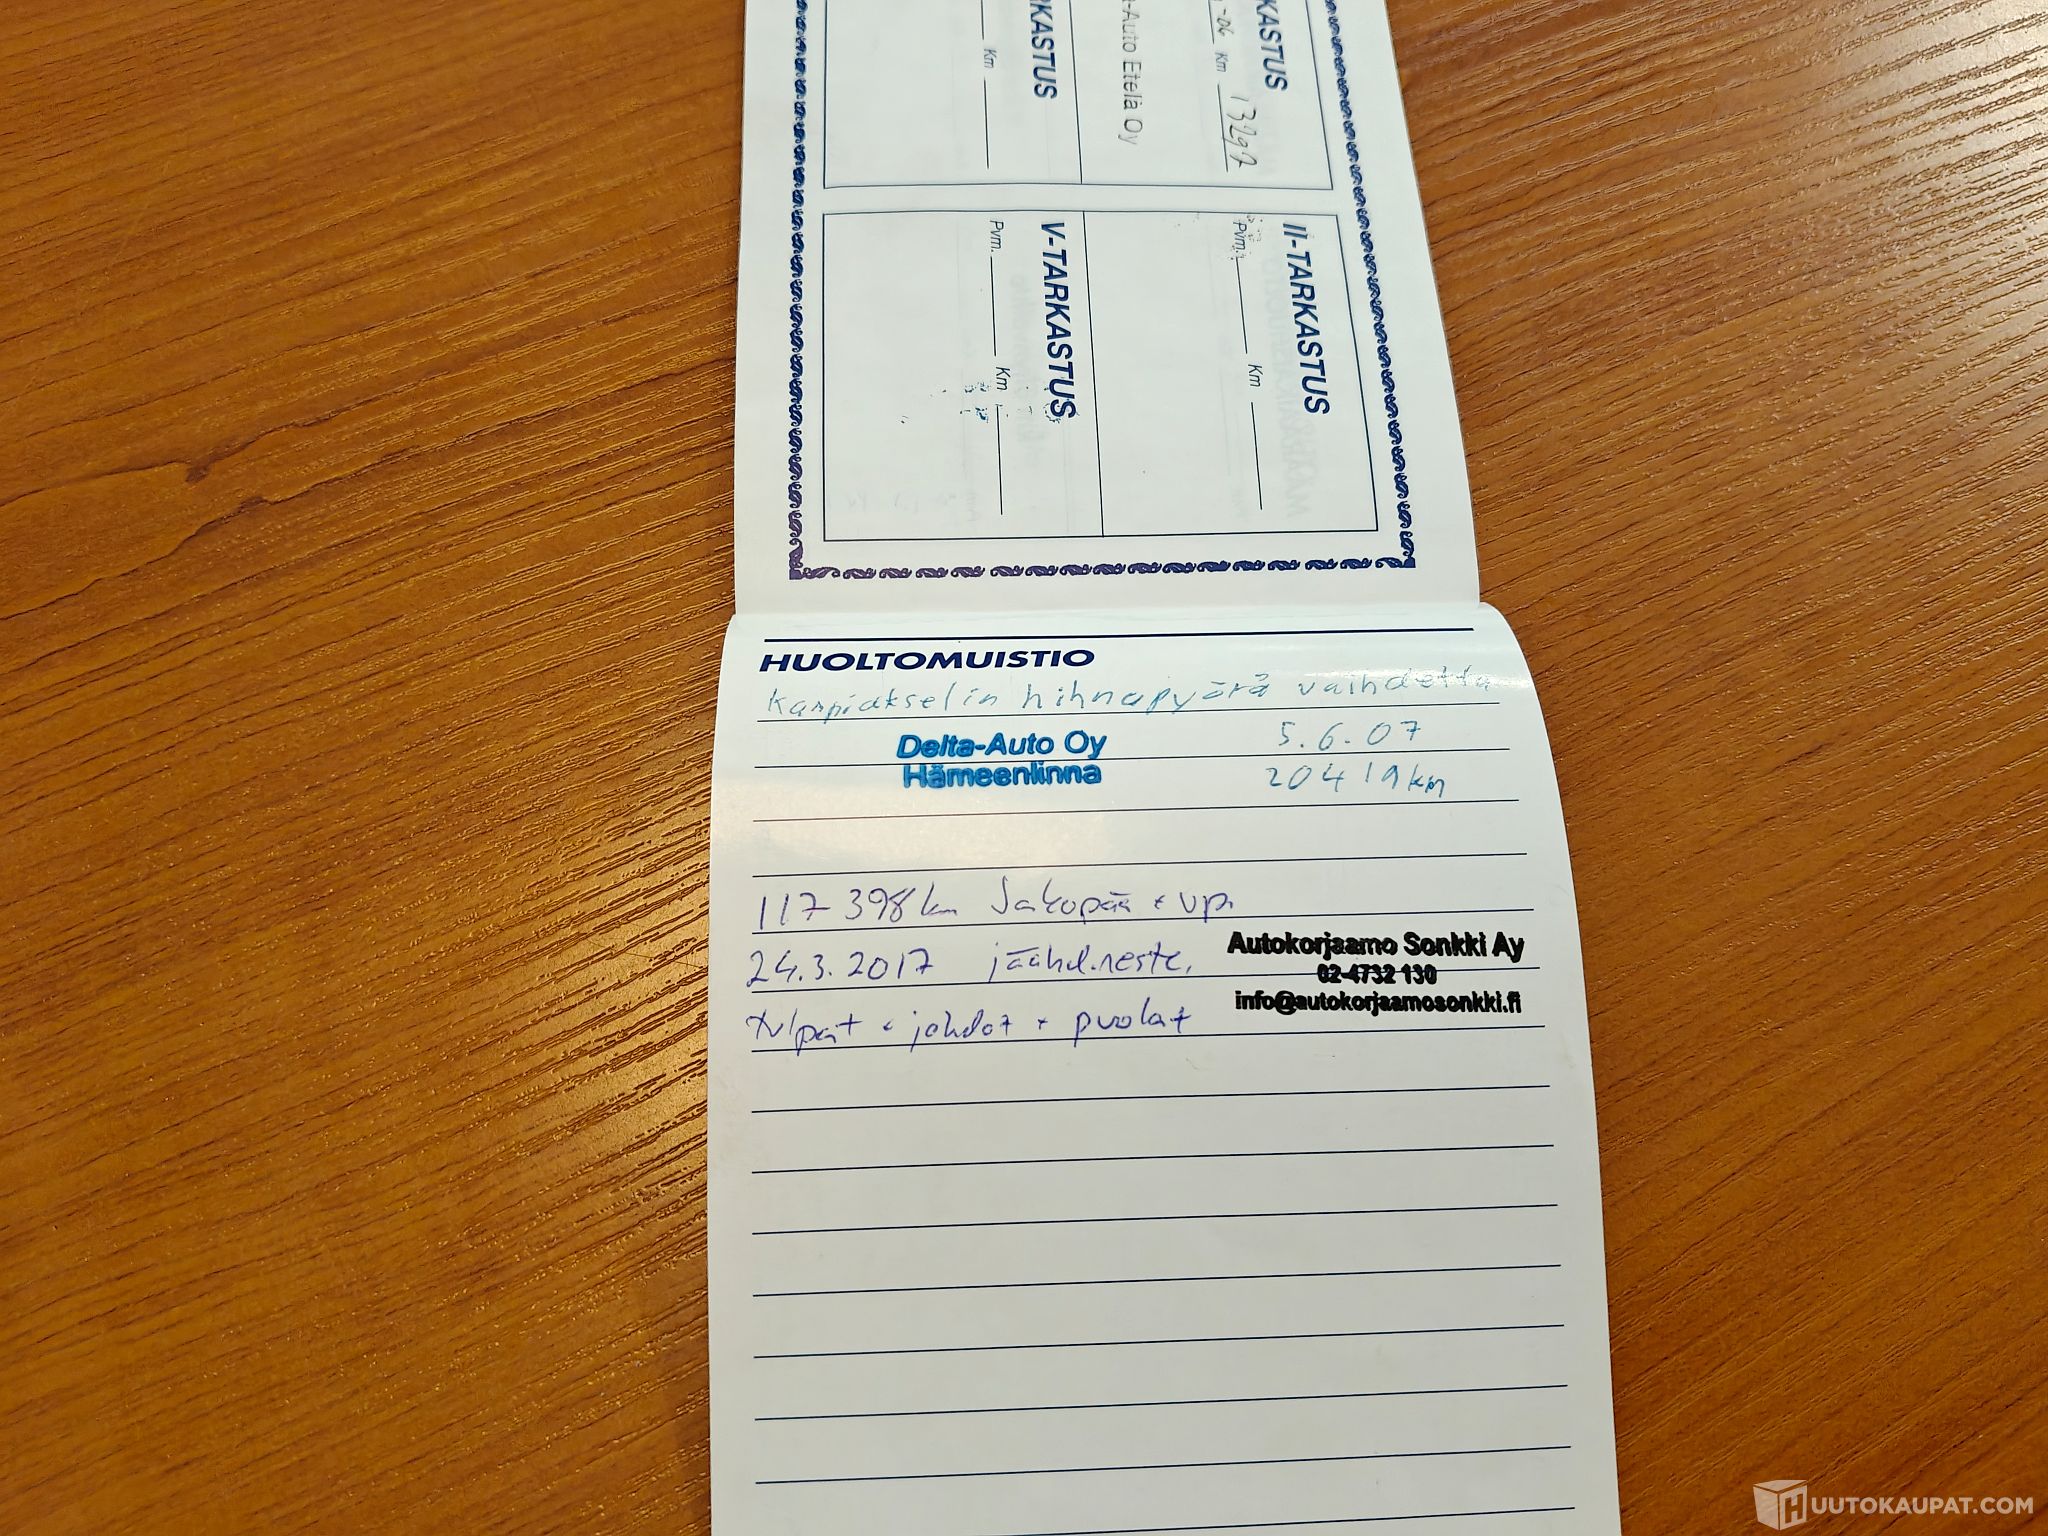 KASTUS
-06 Km 13297
-Auto Etelä Oy
RKASTUS
Km
II-TARKASTUS
Pvm. Km
V-TARKASTUS
Pvm. Km
HUOLTOMUISTIO
Kampiakselin hihnapyörä vaihdettu
Delta-Auto Oy 5.6.07
Hämeenlinna 20419km
117 398km Jakopää + vp.
24.3.2017 jäähd.neste,
tulpat + johdot + puolat
Autokorjaamo Sonkki Ay
02-4732 130
info@autokorjaamosonkki.fi
HUUTOKAUPAT.COM